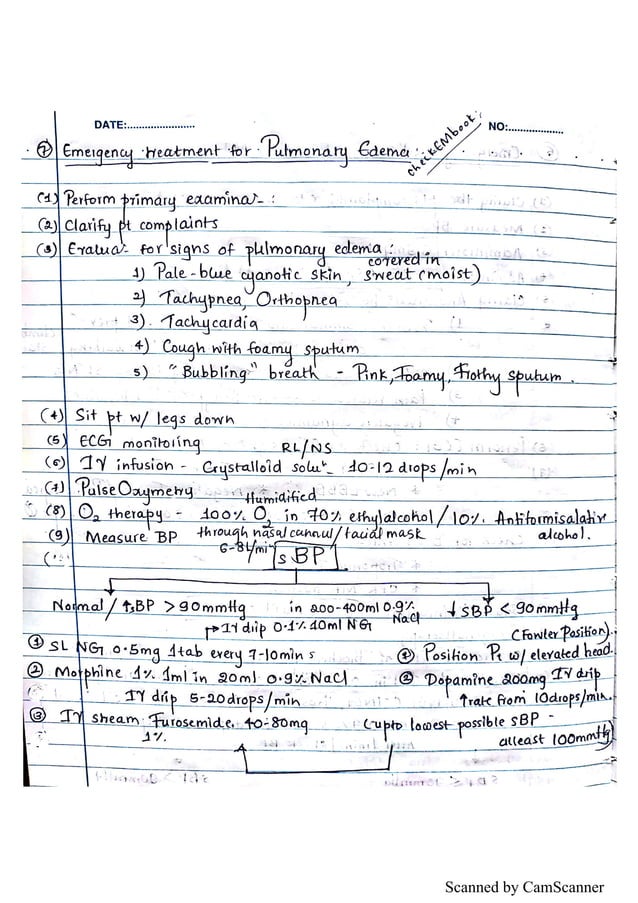 DATE:........................ NO:....................
checkEMbook:
⑦ Emergency treatment for Pulmonary Edema:
(1) Perform primary examina- :
(2) Clarify pt complaints
(3) Evalua- for signs of pulmonary edema:
1) Pale-blue cyanotic skin, covered in sweat (moist)
2) Tachypnea, Orthopnea
3). Tachycardia
4) Cough with foamy sputum
5) "Bubbling" breath - Pink, Foamy, Frothy sputum.
(4) Sit pt w/ legs down
(5) ECG monitoring
(6) IV infusion - Crystalloid solut- RL/NS 10-12 drops/min
(7) Pulse Oxymetry
(8) O2 therapy - Humidified 100% O2 in 70% ethylalcohol/10% Antiformisalative alcohol.
through nasal cannul/facial mask
6-8L/min
(9) Measure BP
sBP
Normal/↑sBP >90mmHg
↓sBP < 90mmHg
in 200-400ml 0.9% NaCl
→IV drip 0.1% 10ml NG
① SL NG 0.5mg 1tab every 7-10mins
② Morphine 1% 1ml in 20ml 0.9% NaCl
IV drip 5-20drops/min
③ IV stream Furosemide 40-80mg
1%
(Fowler Position)
① Position Pt w/ elevated head.
② Dopamine 200mg IV drip
↑rate from 10drops/min.
(upto lowest possible sBP -
atleast 100mmHg)
Scanned by CamScanner